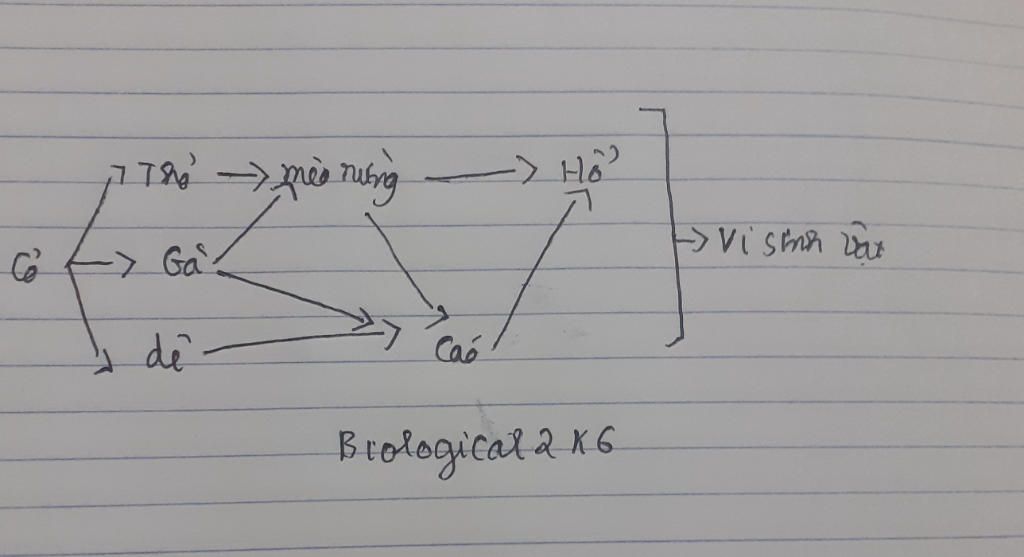 Thỏ → mèo rừng → Hổ
Cỏ → Gà → Vi sinh vật
dê Cáo
Biological 2K6